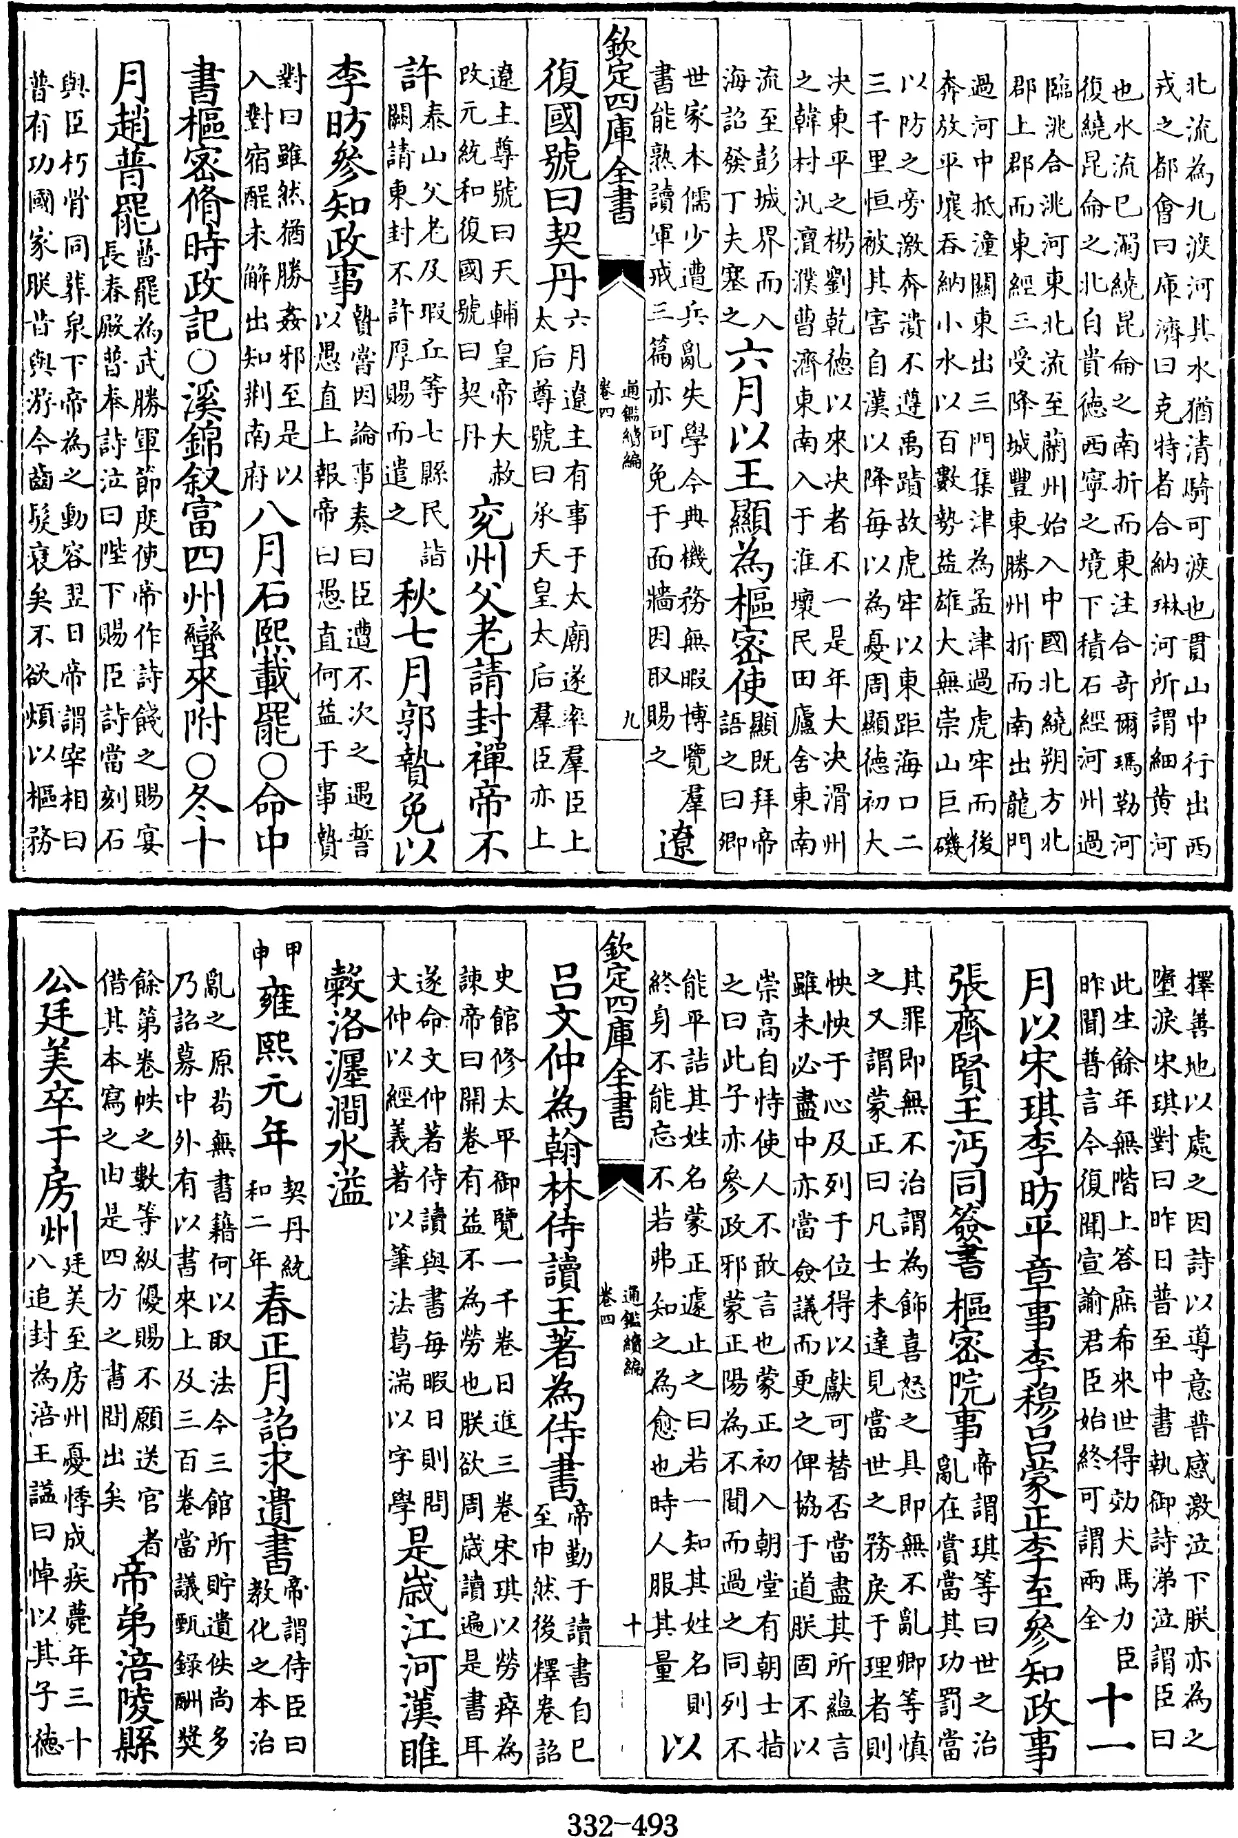 北流為九渡河其水猶清騎可渡也貫山中行出西
戎之都會曰庫濟曰克特者合納琳河所謂細黃河
也水流已濁繞昆侖之南折而東注合奇爾瑪勒河
復繞昆侖之北自貴德西寧之境下積石經河州過
臨洮合洮河東北流至蘭州始入中國北繞朔方北
郡上郡而東經三受降城豐東勝州折而南出龍門
過河中抵潼關東出三門集津為孟津過虎牢而後
奔放平壤吞納小水以百數勢益雄大無崇山巨磯
以防之旁激奔潰不遵禹蹟故虎牢以東距海口二
三千里恒被其害自漢以降每以為憂周顯德初大
決東平之楊劉乾德以來決者不一是年大決滑州
之韓村汎澶濮曹濟東南入于淮壞民田廬舍東南
流至彭城界而入
海詔發丁夫塞之
六月以王顯為樞密使
顯既拜帝
語之曰卿
世家本儒少遭兵亂失學今典機務無暇博覽羣
書能熟讀軍戒三篇亦可免于面牆因取賜之
遼
欽定四庫全書
通鑑續編
卷四
九
復國號曰契丹
六月遼主有事于太廟遂率羣臣上
太后尊號曰承天皇太后羣臣亦上
遼主尊號曰天輔皇帝大赦
改元統和復國號曰契丹
兗州父老請封禪帝不
許
泰山父老及瑕丘等七縣民詣
闕請東封不許厚賜而遣之
秋七月郭贄免以
李昉參知政事
贄嘗因論事奏曰臣遭不次之遇誓
以愚直上報帝曰愚直何益于事贄
對曰雖然猶勝姦邪至是以
入對宿酲未解出知荆南府
八月石熙載罷○命中
書樞密脩時政記○溪錦叙富四州蠻來附○冬十
月趙普罷
普罷為武勝軍節度使帝作詩餞之賜宴
長春殿普奉詩泣曰陛下賜臣詩當刻石
與臣朽骨同葬泉下帝為之動容翌日帝謂宰相曰
普有功國家朕昔與游今齒髮衰矣不欲煩以樞務
擇善地以處之因詩以導意普感激泣下朕亦為之
墮淚宋琪對曰昨日普至中書執御詩涕泣謂臣曰
此生餘年無階上答庶希來世得効犬馬力臣
昨聞普言今復聞宣諭君臣始終可謂兩全
十一
月以宋琪李昉平章事李穆呂蒙正李至參知政事
張齊賢王沔同簽書樞密院事
帝謂琪等曰世之治
亂在賞當其功罰當
其罪即無不治謂為飾喜怒之具即無不亂卿等慎
之又謂蒙正曰凡士未達見當世之務戾于理者則
怏怏于心及列于位得以獻可替否當盡其所蘊言
雖未必盡中亦當僉議而更之俾協于道朕固不以
崇高自恃使人不敢言也蒙正初入朝堂有朝士指
之曰此子亦參政邪蒙正陽為不聞而過之同列不
能平詰其姓名蒙正遽止之曰若一知其姓名則
終身不能忘不若弗知之為愈也時人服其量
以
欽定四庫全書
通鑑續編
卷四
十
呂文仲為翰林侍讀王著為侍書
帝勤于讀書自巳
至申然後釋卷詔
史館修太平御覽一千卷日進三卷宋琪以勞瘁為
諫帝曰開卷有益不為勞也朕欲周歲讀遍是書耳
遂命文仲著侍讀與書每暇日則問
文仲以經義著以筆法葛湍以字學
是歲江河漢睢
穀洛瀍澗水溢
甲
申
雍熙元年
契丹統
和二年
春正月詔求遺書
帝謂侍臣曰
教化之本治
亂之原苟無書籍何以取法今三館所貯遺佚尚多
乃詔募中外有以書來上及三百卷當議甄錄酬奬
餘第卷帙之數等級優賜不願送官者
借其本寫之由是四方之書間出矣
帝弟涪陵縣
公廷美卒于房州
廷美至房州憂悸成疾薨年三十
八追封為涪王諡曰悼以其子德
332-493